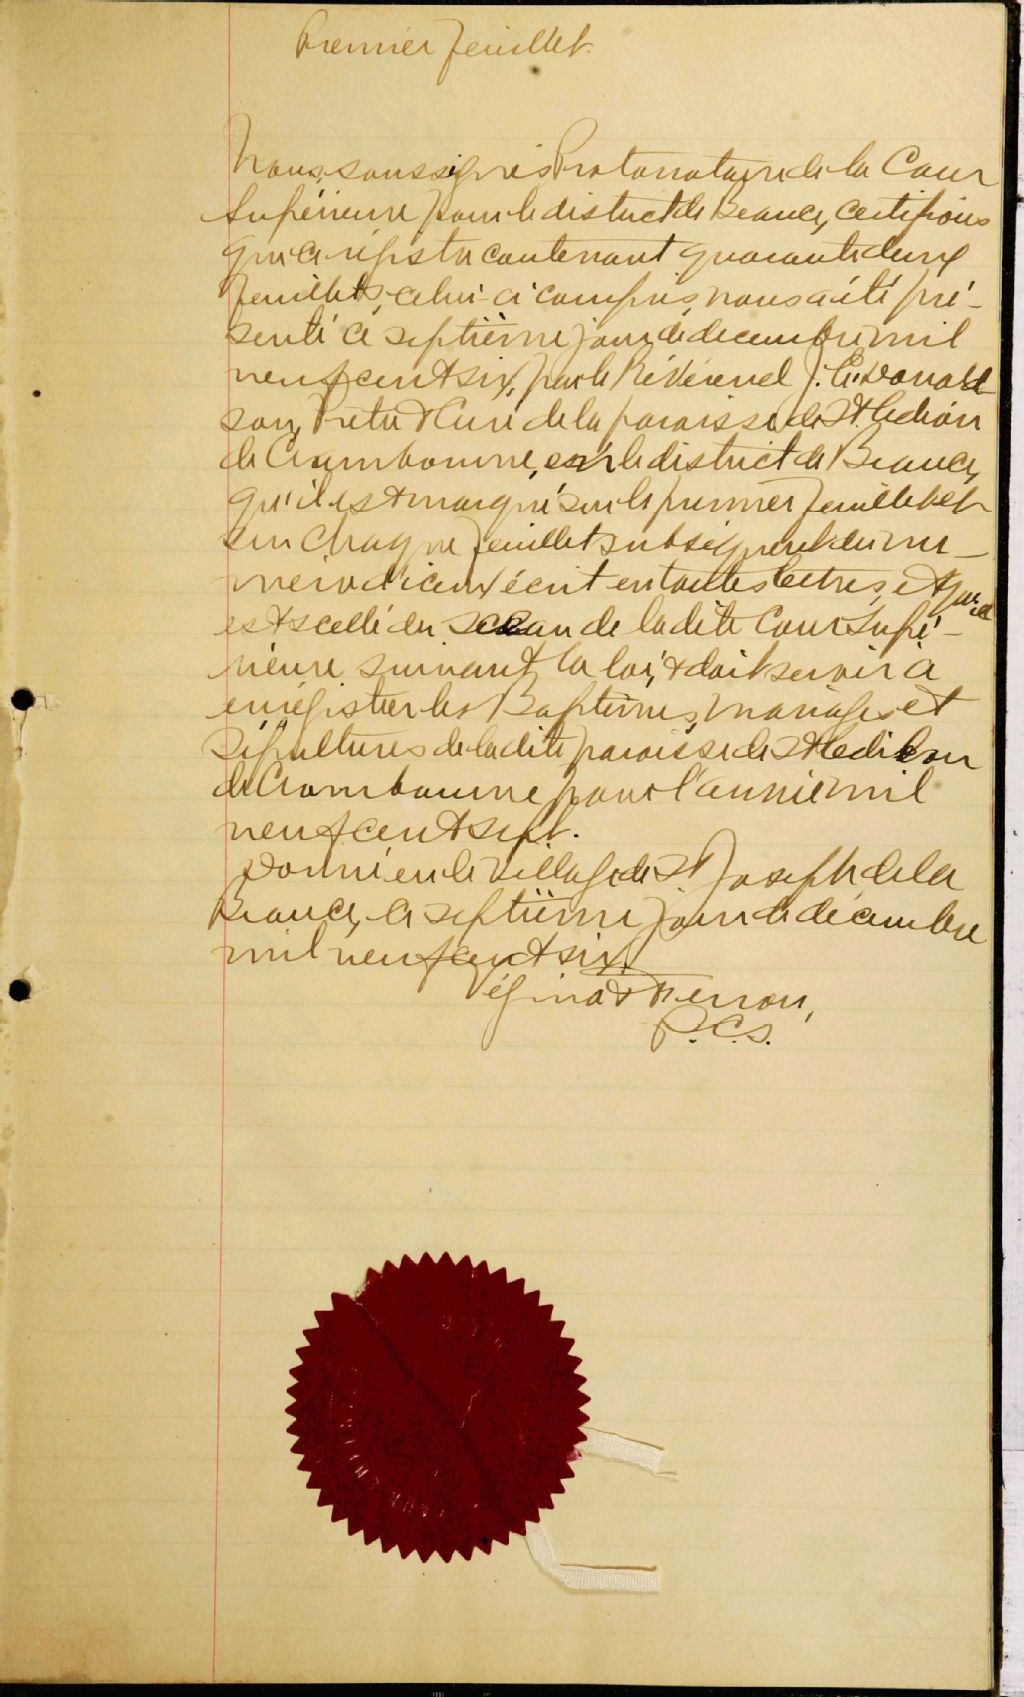 Premier feuillet.
Nous, soussignés Protonotaire de la Cour
Supérieure pour le district de Beauce, certifions
que ce registre contenant quarante deux
feuillets, celui-ci compris, nous a été pré-
senté ce septième jour de décembre mil
neuf cent six, par le Révérend J. E. Donald
son, Prêtre & Curé de la paroisse de St. Hedion
de Crambourne, en le district de Beauce,
qu'il est marqué sur le premier feuillet et
sur chaque feuillet subséquent du nu-
méro d'iceux écrit en toutes lettres, et qu'il
est scellé du sceau de la dite Cour Supé-
rieure suivant la loi, & doit servir à
enrégistrer les Baptêmes, mariages et
Sépultures de la dite paroisse de St Hedilon
de Crambourne pour l'année mil
neuf cent sept.
Donné en le Village de St Joseph de la
Beauce, le septième jour de décembre
mil neuf cent six.
Vézina & Ferron,
P.C.S.